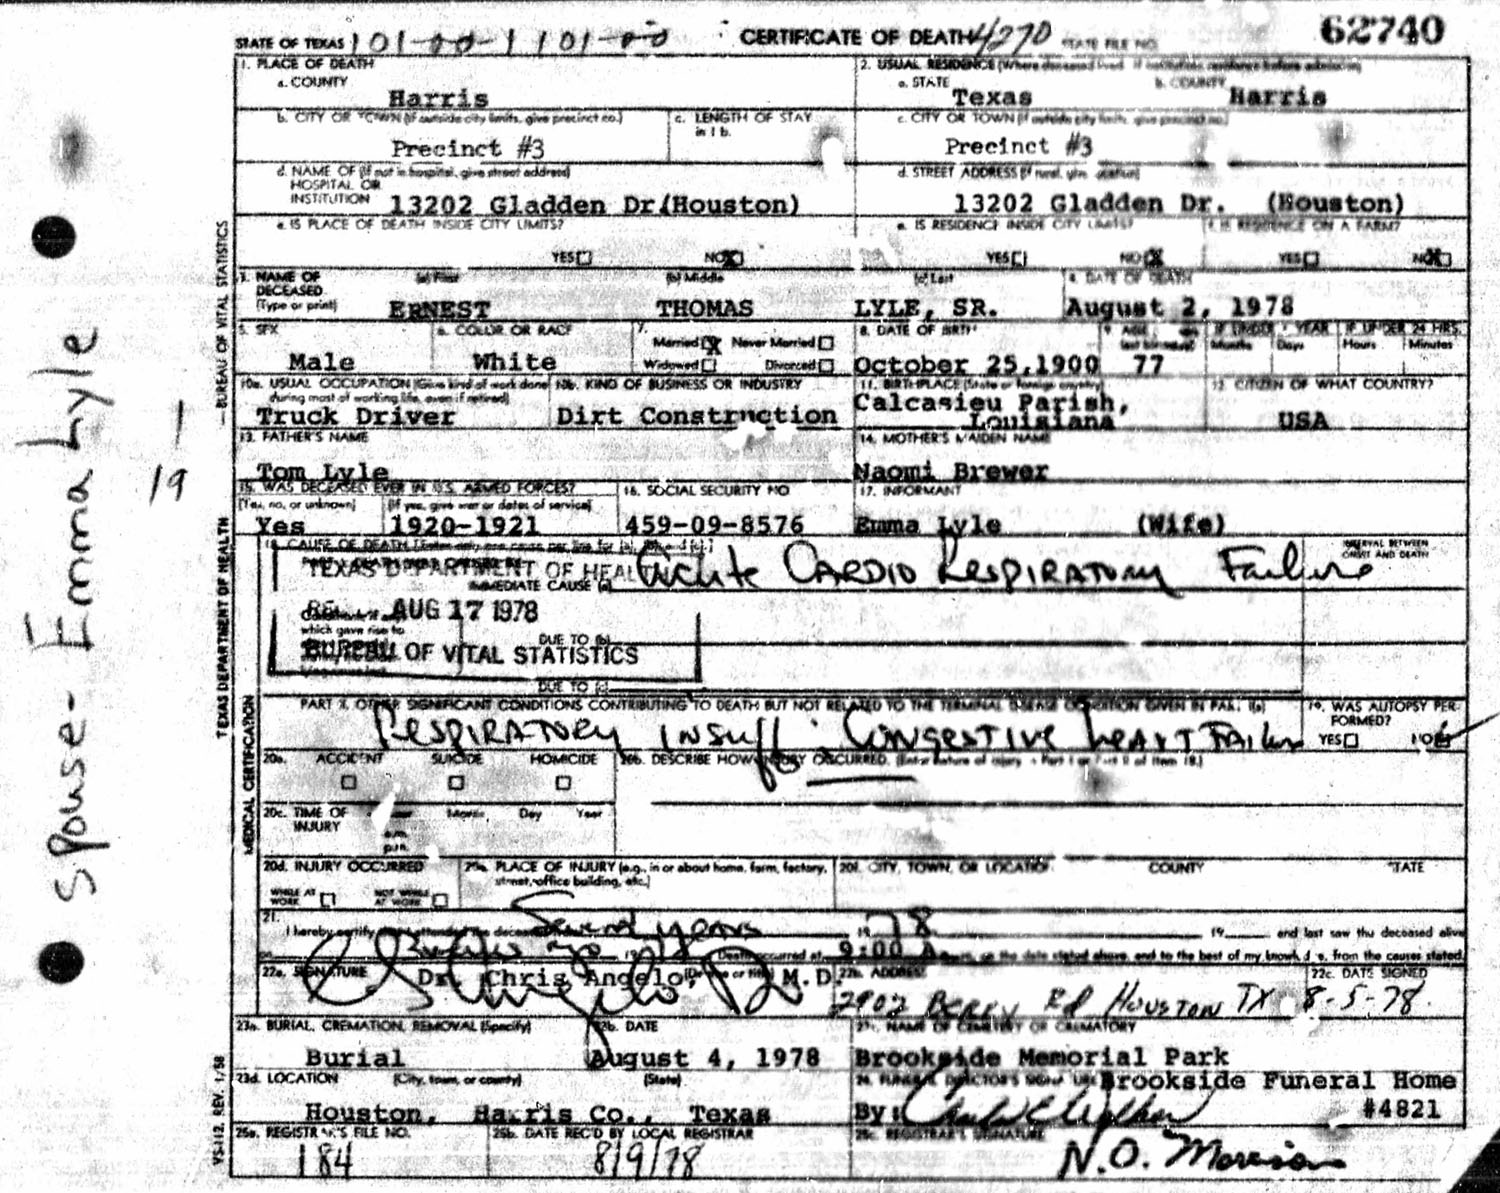 STATE OF TEXAS 101-00-1 101-00 CERTIFICATE OF DEATH 4270 STATE FILE NO. 62740
1. PLACE OF DEATH
a. COUNTY
Harris
2. USUAL RESIDENCE (Where deceased lived. If institution, residence before admission)
a. STATE
Texas
b. COUNTY
Harris
b. CITY OR TOWN (If outside city limits, give precinct no.)
Precinct #3
c. LENGTH OF STAY
in 1 b.
c. CITY OR TOWN (If outside city limits, give precinct no.)
Precinct #3
d. NAME OF (If not in hospital, give street address)
HOSPITAL OR
INSTITUTION 13202 Gladden Dr(Houston)
d. STREET ADDRESS (If rural, give location)
13202 Gladden Dr. (Houston)
e. IS PLACE OF DEATH INSIDE CITY LIMITS?
YES NO X
e. IS RESIDENCE INSIDE CITY LIMITS?
YES NO X
f. IS RESIDENCE ON A FARM?
YES NO X
3. NAME OF
DECEASED
(Type or print)
(a) First
ERNEST
(b) Middle
THOMAS
(c) Last
LYLE, SR.
4. DATE OF DEATH
August 2, 1978
5. SEX
Male
6. COLOR OR RACE
White
7.
Married X Never Married
Widowed Divorced
8. DATE OF BIRTH
October 25,1900
9. AGE
last birthday
77
IF UNDER 1 YEAR
Months Days
IF UNDER 24 HRS.
Hours Minutes
10a. USUAL OCCUPATION (Give kind of work done
during most of working life, even if retired)
Truck Driver
10b. KIND OF BUSINESS OR INDUSTRY
Dirt Construction
11. BIRTHPLACE (State or foreign country)
Calcasieu Parish,
Louisiana
12. CITIZEN OF WHAT COUNTRY?
USA
13. FATHER'S NAME
Tom Lyle
14. MOTHER'S MAIDEN NAME
Naomi Brewer
15. WAS DECEASED EVER IN U.S. ARMED FORCES?
(Yes, no, or unknown)
Yes
(If yes, give war or dates of service)
1920-1921
16. SOCIAL SECURITY NO
459-09-8576
17. INFORMANT
Emma Lyle (Wife)
18. CAUSE OF DEATH [Enter only one cause per line for (a), (b), and (c).]
INTERVAL BETWEEN
ONSET AND DEATH
TEXAS DEPARTMENT OF HEALTH
IMMEDIATE CAUSE (a) Acute Cardio Respiratory Failure
AUG 17 1978
which gave rise to
DUE TO (b)
BUREAU OF VITAL STATISTICS
DUE TO (c)
PART II. OTHER SIGNIFICANT CONDITIONS CONTRIBUTING TO DEATH BUT NOT RELATED TO THE TERMINAL DISEASE CONDITION GIVEN IN PART I(a)
Respiratory insuff. Congestive heart Failure
19. WAS AUTOPSY PER-
FORMED?
YES NO
20a. ACCIDENT SUICIDE HOMICIDE
20b. DESCRIBE HOW INJURY OCCURRED. (Enter nature of injury in Part I or Part II of Item 18.)
20c. TIME OF
INJURY
Hour Month Day Year
a.m.
p.m.
20d. INJURY OCCURRED
WHILE AT
WORK
NOT WHILE
AT WORK
20e. PLACE OF INJURY (e.g., in or about home, farm, factory,
street, office building, etc.)
20f. CITY, TOWN, OR LOCATION COUNTY STATE
21.
I hereby certify that I attended the deceased Several years 19 78 19 and last saw the deceased alive
Death occurred at 9:00 A m., on the date stated above, and to the best of my knowledge, from the causes stated.
22a. SIGNATURE (Degree or title)
Dr. Chris Angelo, M.D.
22b. ADDRESS
2902 Berry Rd Houston TX
22c. DATE SIGNED
8-5-78
23a. BURIAL, CREMATION, REMOVAL (Specify)
Burial
23b. DATE
August 4, 1978
23c. NAME OF CEMETERY OR CREMATORY
Brookside Memorial Park
23d. LOCATION (City, town, or county) (State)
Houston, Harris Co., Texas
24. FUNERAL DIRECTOR'S SIGNATURE
Brookside Funeral Home
By: #4821
25a. REGISTRAR'S FILE NO.
184
25b. DATE REC'D BY LOCAL REGISTRAR
8/9/78
25c. REGISTRAR'S SIGNATURE
N.O. Morrison
VS-112, REV. 1/58
TEXAS DEPARTMENT OF HEALTH — BUREAU OF VITAL STATISTICS
MEDICAL CERTIFICATION
Spouse- Emma Lyle
19